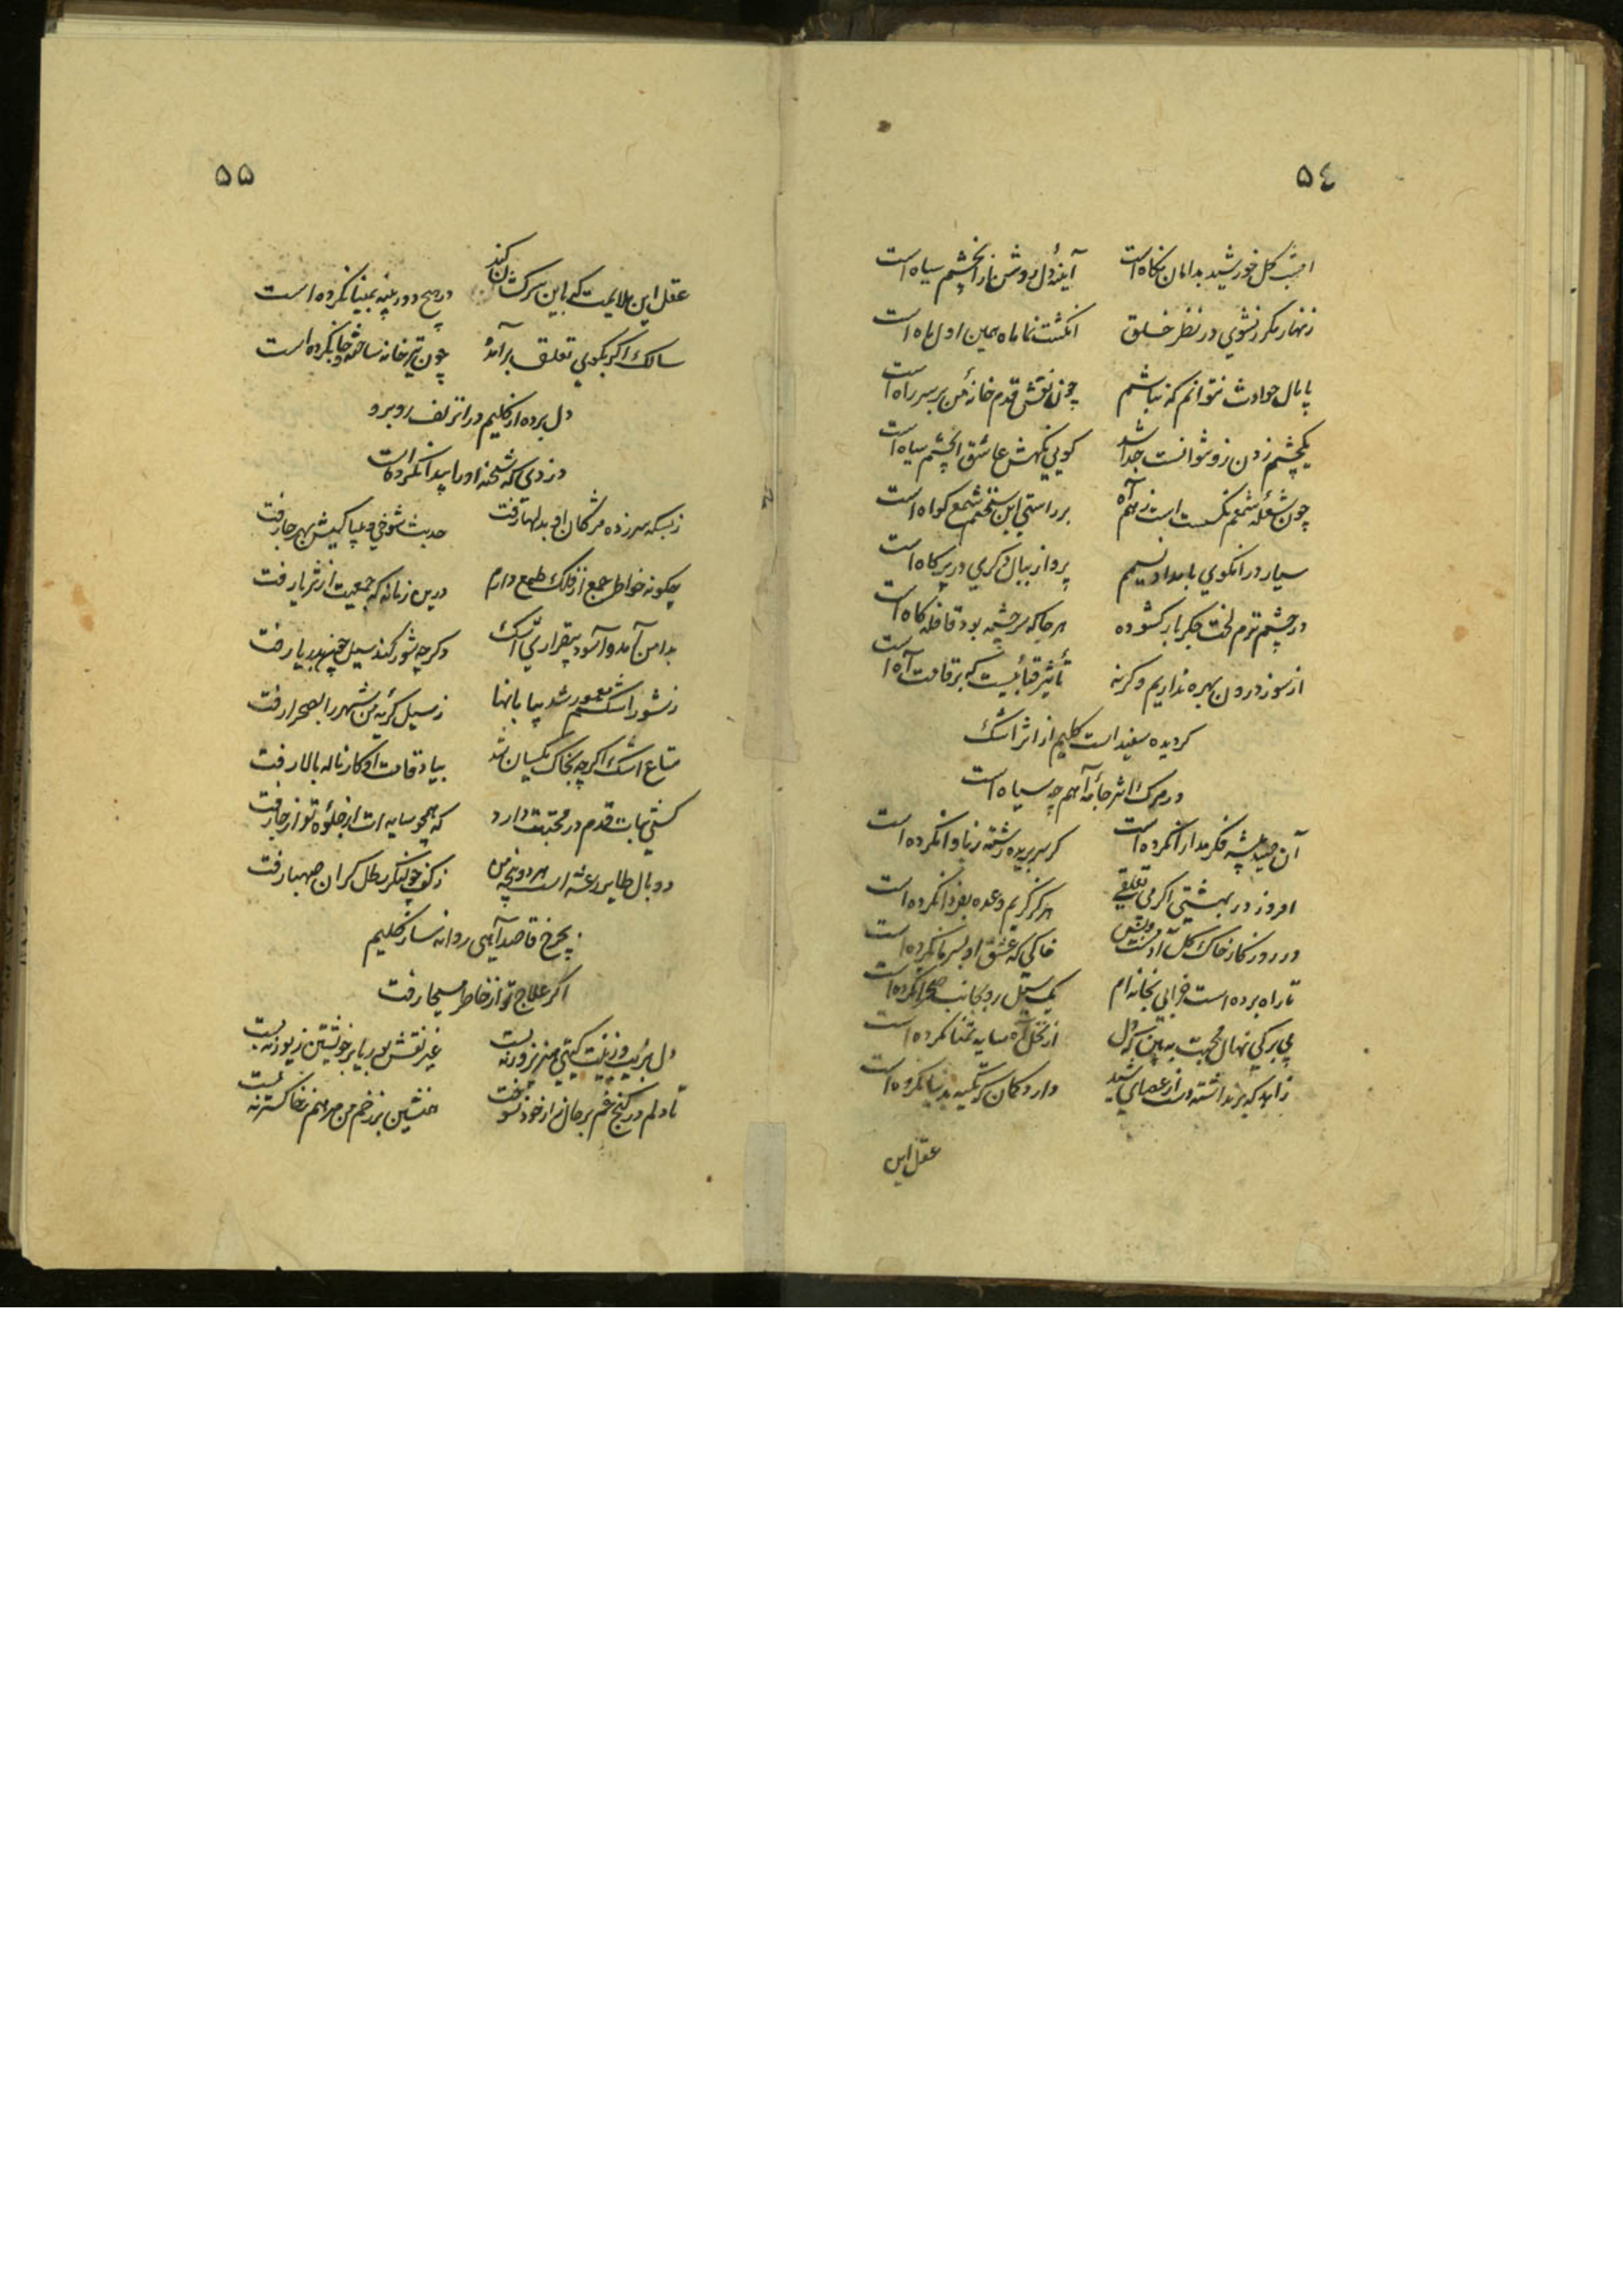 ٥٤
امشب گل خورشید بدامان نگاه است آینهٔ دل روشن ما را بخشم سیاه است
زنهار مکرر نشوی در نظر خلق انگشت نما ماه همین اول ماه است
پامال حوادث نتوانم که نباشم چون نقش قدم خانهٔ من بر سر راه است
یکچشم زدن زو نتوانست جدا شد گویی نگهش عاشق آنچشم سیاه است
چون شعلهٔ شمعم نگسست است ز هم آه بر راستی این سخنم شمع گواه است
سیار در انکوی بامداد نسیمم پرواز ببال دگری در پر کاه است
در چشم ترم لخت جگر بار گشوده هر جا که سر چشمه بود قافله گاه است
از سوز درون بهره نداریم وگرنه تأثیر قبائیست که بر قامت آه است
گر دیده سفید است کلیم از اثر اشک
در مرگ اثر جامهٔ آهم چه سیاه است
آن صید پیشه فکر مدارا نکرده است گر سر بریده رشته ز پا وا نکرده است
امروز در بهشتی اگر بی تعلقی هرگز کریم وعده بفردا نکرده است
در روزگار خاک گل آدمست خاکی که عشق او بسر ما نکرده است
تا راه برده است خرابی بخانه ام یک سیل رو بجانب صحرا نکرده است
بی برگی نهال محبت به بین که دل از نخل آه سایه تمنا نکرده است
زاهد که برنداشته دست از عصای شید دارد گمان که تکیه بدنیا نکرده است
عقل این
٥٥
عقل این ملایمت که باین سرکشان کند در هیچ دور پنبه بمینا نکرده است
سالک اگر بکوی تعلق برآمده چون تیر خانه ساخته و جا نکرده است
دل برده از کلیم در انزلف روبرو
دزدی که شحنه اورا پیدا نکرده است
ز بسکه سر زده مژگان او بدلها رفت حدیث شوخی و بیباکیش بهر جا رفت
چگونه خواطر جمع از فلک طمع دارم درین زمانه که جمعیت از ثریا رفت
بدامن آمد و آسود بیقراری اشک وگرچه شور کند سیل چون بدریا رفت
ز شور اشکم معمور شد بیابانها ز سیل گریه من شهر را بصحرا رفت
متاع اشک اگرچه بخاک یکسان شد بیاد قامت او کار ناله بالا رفت
کسی ثبات قدم در محبتت دارد که همچو سایه ات از جلوه تو از جا رفت
دو بال طایر رعشه است هر دو پنجهٔ من ز کف چو لنگر رطل گران صهبا رفت
بچرخ قاصد آهی روانه ساز کلیم
اگر علاج تو از خاطر مسیحا رفت
دل بزیب و زینت گیتی هنرپرور نه بست غیر نقش بوریا بر خویشتن زیور نه بست
تا دلم در کنج غم بر حال زار خود نسوخت همنشین بر زخم من مرهم ز خاکستر نه بست